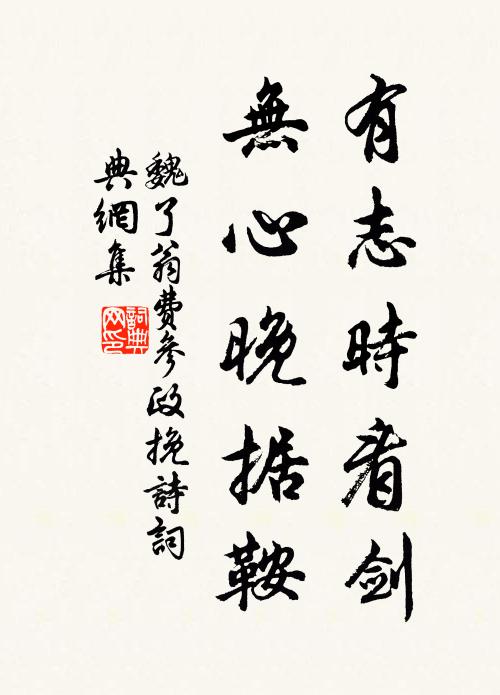 有志時看剑
無心晚据鞍
魏了翁費參政挽詩詞
典網集
詞典网印